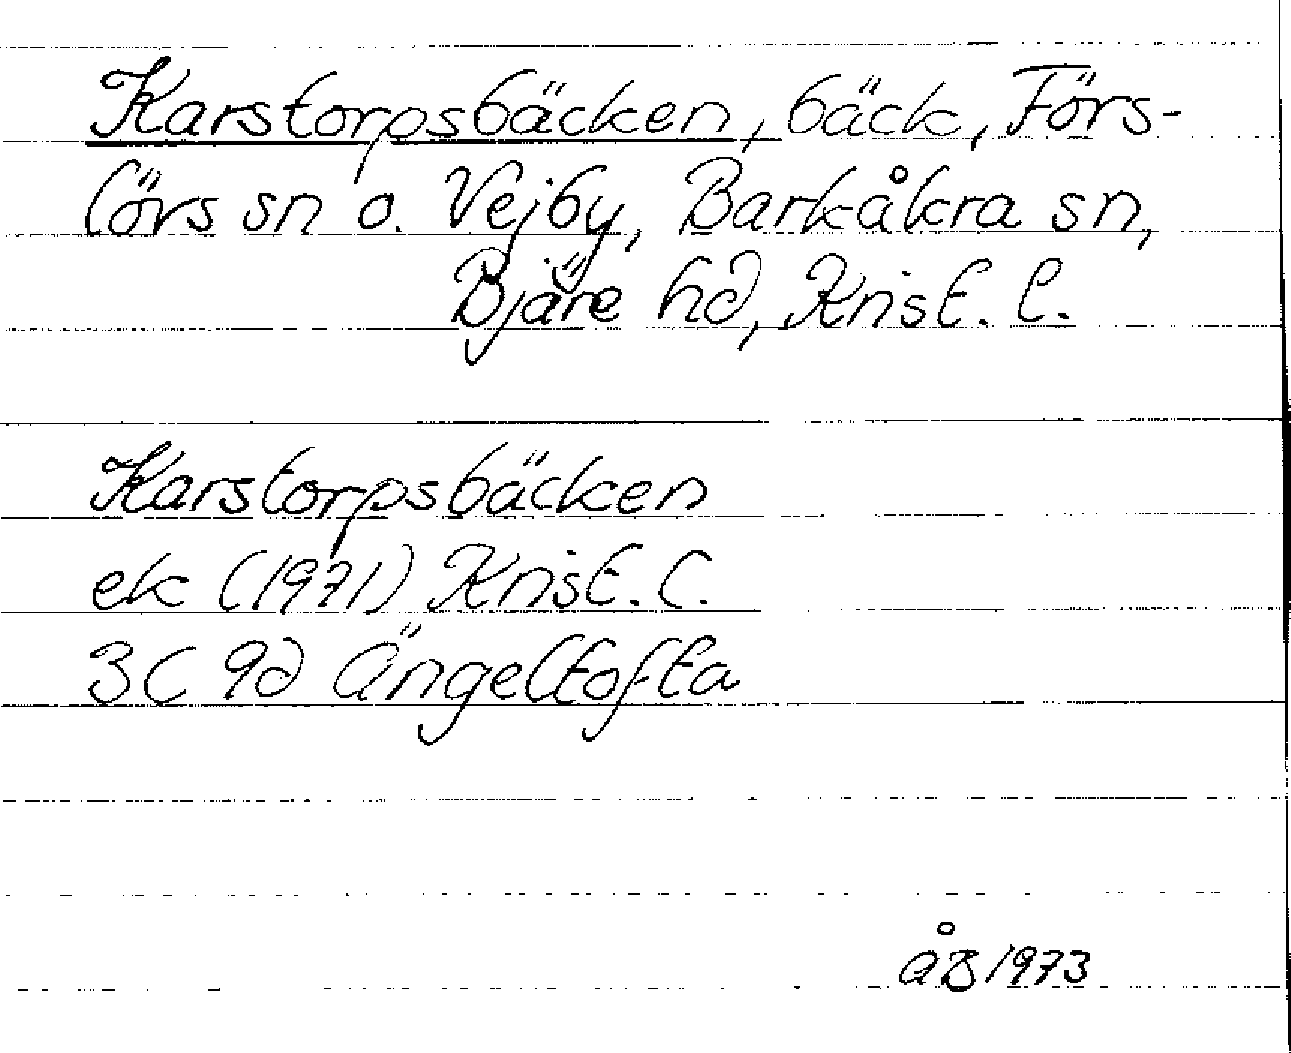 Karstorpsbäcken, bäck, Förs-
lövs sn o. Vejby, Barkåkra sn,
Bjäre hd, Krist. l.
Karstorpsbäcken
ek (1971) Krist. l.
3C 9d Ängeltofta
ÅB 1973